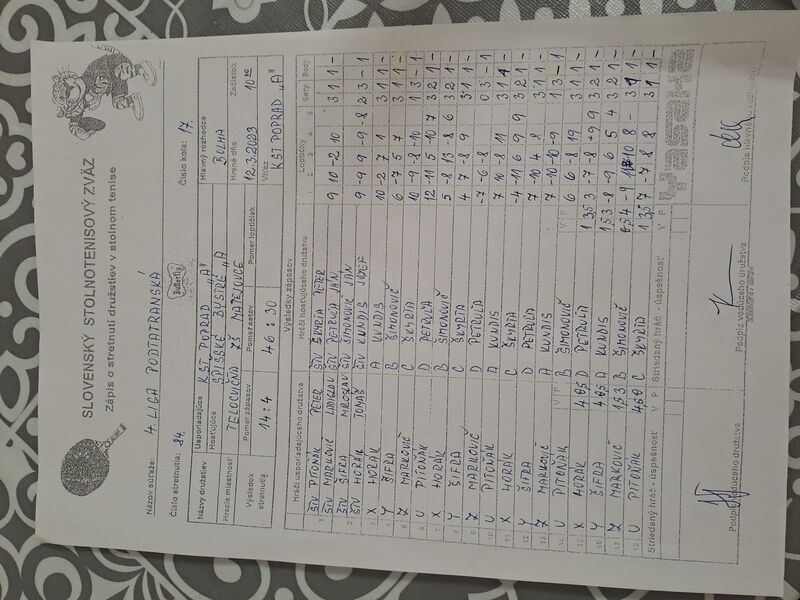 SLOVENSKÝ STOLNOTENISOVÝ ZVÄZ
Zápis o stretnutí družstiev v stolnom tenise
Názov súťaže: 4. LIGA PODTATRANSKÁ
Číslo stretnutia: 84. Butterfly Číslo kola: 17.
Názvy družstiev Usporiadajúce KST POPRAD "A" Hlavný rozhodca
Hosťujúce SPIŠSKÉ BYSTRÉ "A" BULHA
Hracia miestnosť TELOCVIČŇA ZŠ MATEJOVCE Hrané dňa 12.3.2023 Začiatok 10 00
Výsledok stretnutia Pomer zápasov 14:4 Pomer setov 46:30 Pomer loptičiek Víťaz KST POPRAD "A"
Výsledky zápasov
Hráči usporiadajúceho družstva Hráči hosťujúceho družstva Loptičky Sety Body
ŠTV PITOŇÁK PETER ŠTV ŠKYRTA PETER 9 10 -2 10 3 1 1 -
ŠTV MARKOVIČ LADISLAV ŠTV PETRUĽA JÁN
ŠTV ŠIFRA MIROSLAV ŠTV ŠIMONOVIČ JÁN 9 -9 9 -9 -8 2 3 - 1
ŠTV HORÁK TOMÁŠ ŠTV KUNDIS JOZEF
X HORÁK A KUNDIS 10 -2 7 1 3 1 1 -
Y ŠIFRA B ŠIMONOVIČ 6 -7 5 7 3 1 1 -
Z MARKOVIČ C ŠKYRTA 10 -9 -8 -10 1 3 - 1
U PITOŇÁK D PETRUĽA 12 -11 5 -10 7 3 2 1 -
X HORÁK B ŠIMONOVIČ 5 -8 13 -8 6 3 2 1 -
Y ŠIFRA C ŠKYRTA 4 7 -8 9 3 1 1 -
Z MARKOVIČ D PETRUĽA -7 -6 -8 0 3 - 1
U PITOŇÁK A KUNDIS 7 10 -8 11 3 1 1 -
X HORÁK C ŠKYRTA -4 -11 6 9 9 3 2 1 -
Y ŠIFRA D PETRUĽA 7 -10 4 8 3 1 1 -
Z MARKOVIČ A KUNDIS 7 -10 -10 -9 1 3 - 1
U PITOŇÁK B ŠIMONOVIČ 6 6 -8 19 3 1 1 -
X HORÁK D PETRUĽA 3 -7 -8 9 9 3 2 1 -
Y ŠIFRA A KUNDIS -8 -9 6 5 4 3 2 1 -
Z MARKOVIČ B ŠIMONOVIČ
U PITOŇÁK C ŠKYRTA 7 -7 8 8 3 1 1 -
Striedaný hráč - úspešnosť V P Striedaný hráč - úspešnosť V P
Podpis vedúceho družstva Podpis vedúceho družstva Podpis hlavného